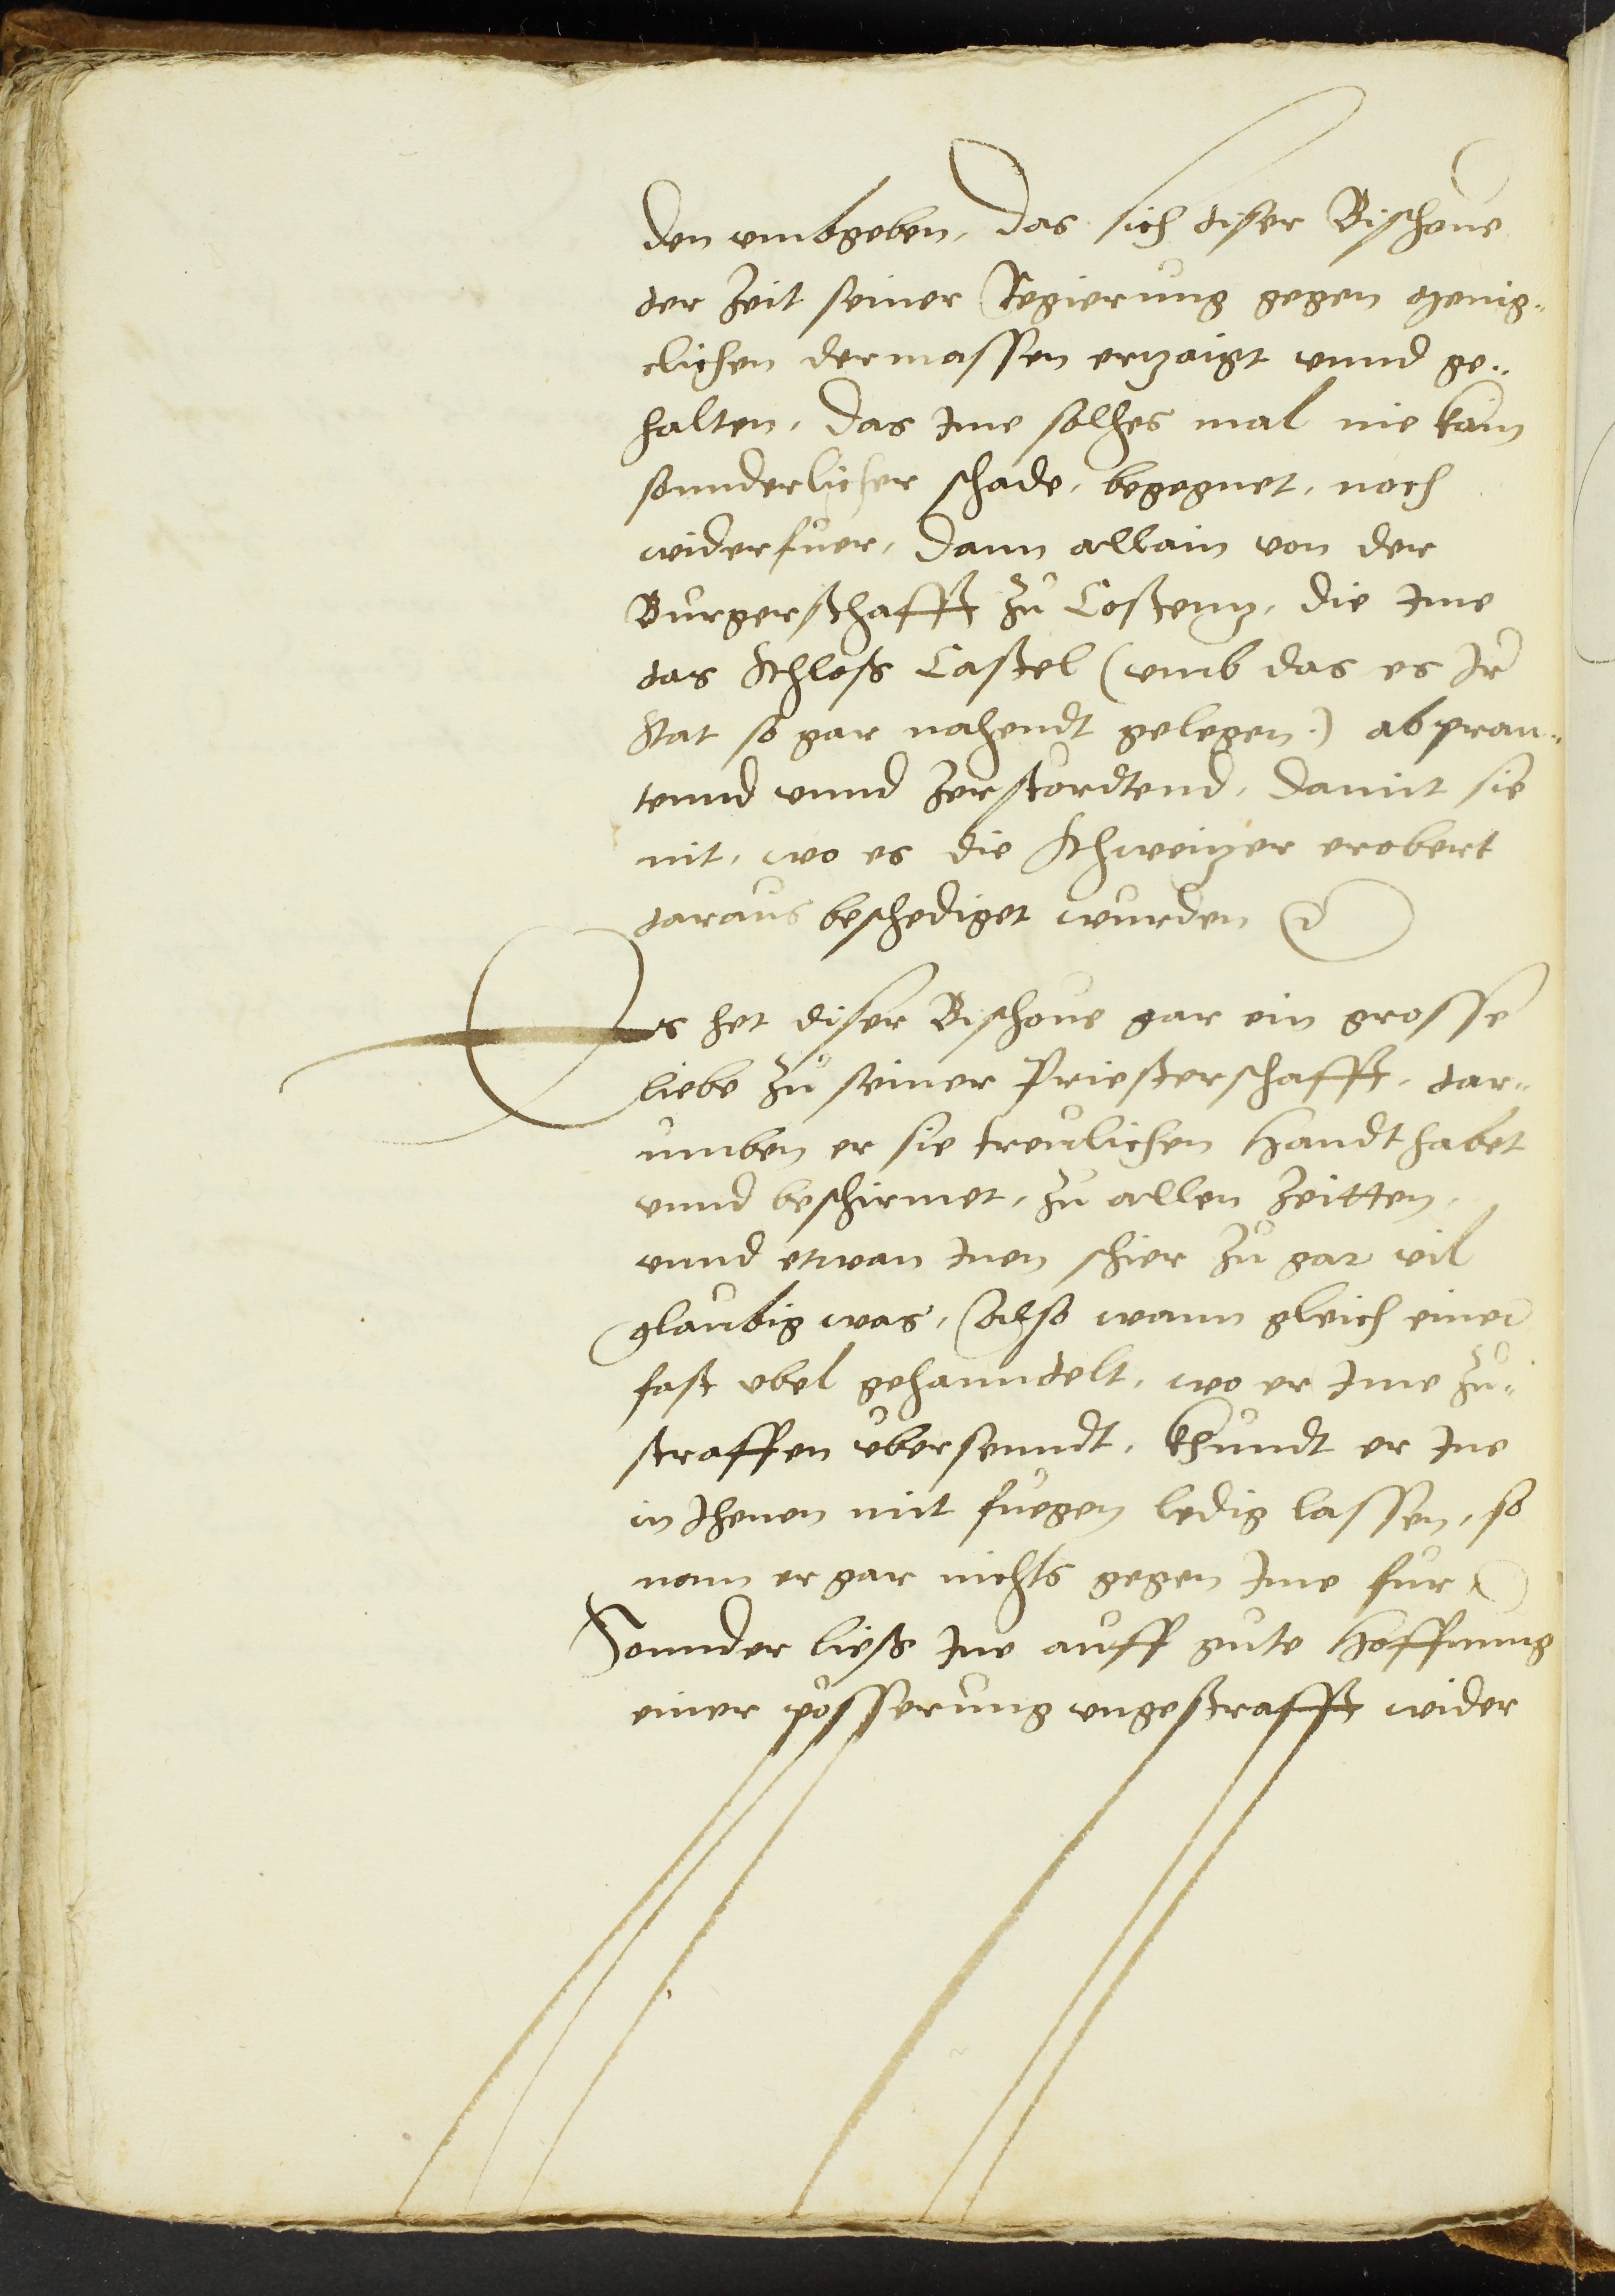 den umbgeben, Das sich diser Bischove
der Zeit seiner Regierung gegen Menig„
clichen dermassen erzaigt unnd ge„
halten, Das Ime solhes mal nie kain
sonnderlicher schade, begegnet, noch
widerfuer, Dann allain von der
Burgerschafft Zů Costenz, die Ime
das Schloß Castel (umb das es Ir
Stat so gar nahendt gelegen.) abpran„
tennd unnd Zerstördtend, Damit sie
nit, wo es die Schweizer erobert
daraus beschediget wurden
Es het diser Bischove gar ein grosse
liebe Zů seiner Priesterschafft, dar„
umben er sie treulichen Handthabet
unnd beschirmet, Zů allen Zeitten,
unnd etwan Inen schier Zů gar vil
glaubig was, Also wann gleich einer
fast ubel gehanndelt, wo er Ime Zů„
straffen ubersenndt, Khundt er Ine
in Ihenen mit fuegen ledig lassen, so
nam er gar nichts gegen Ime fur
Sonnder ließ Ine auff gute Hoffnung
einer pösserung ungestrafft wider